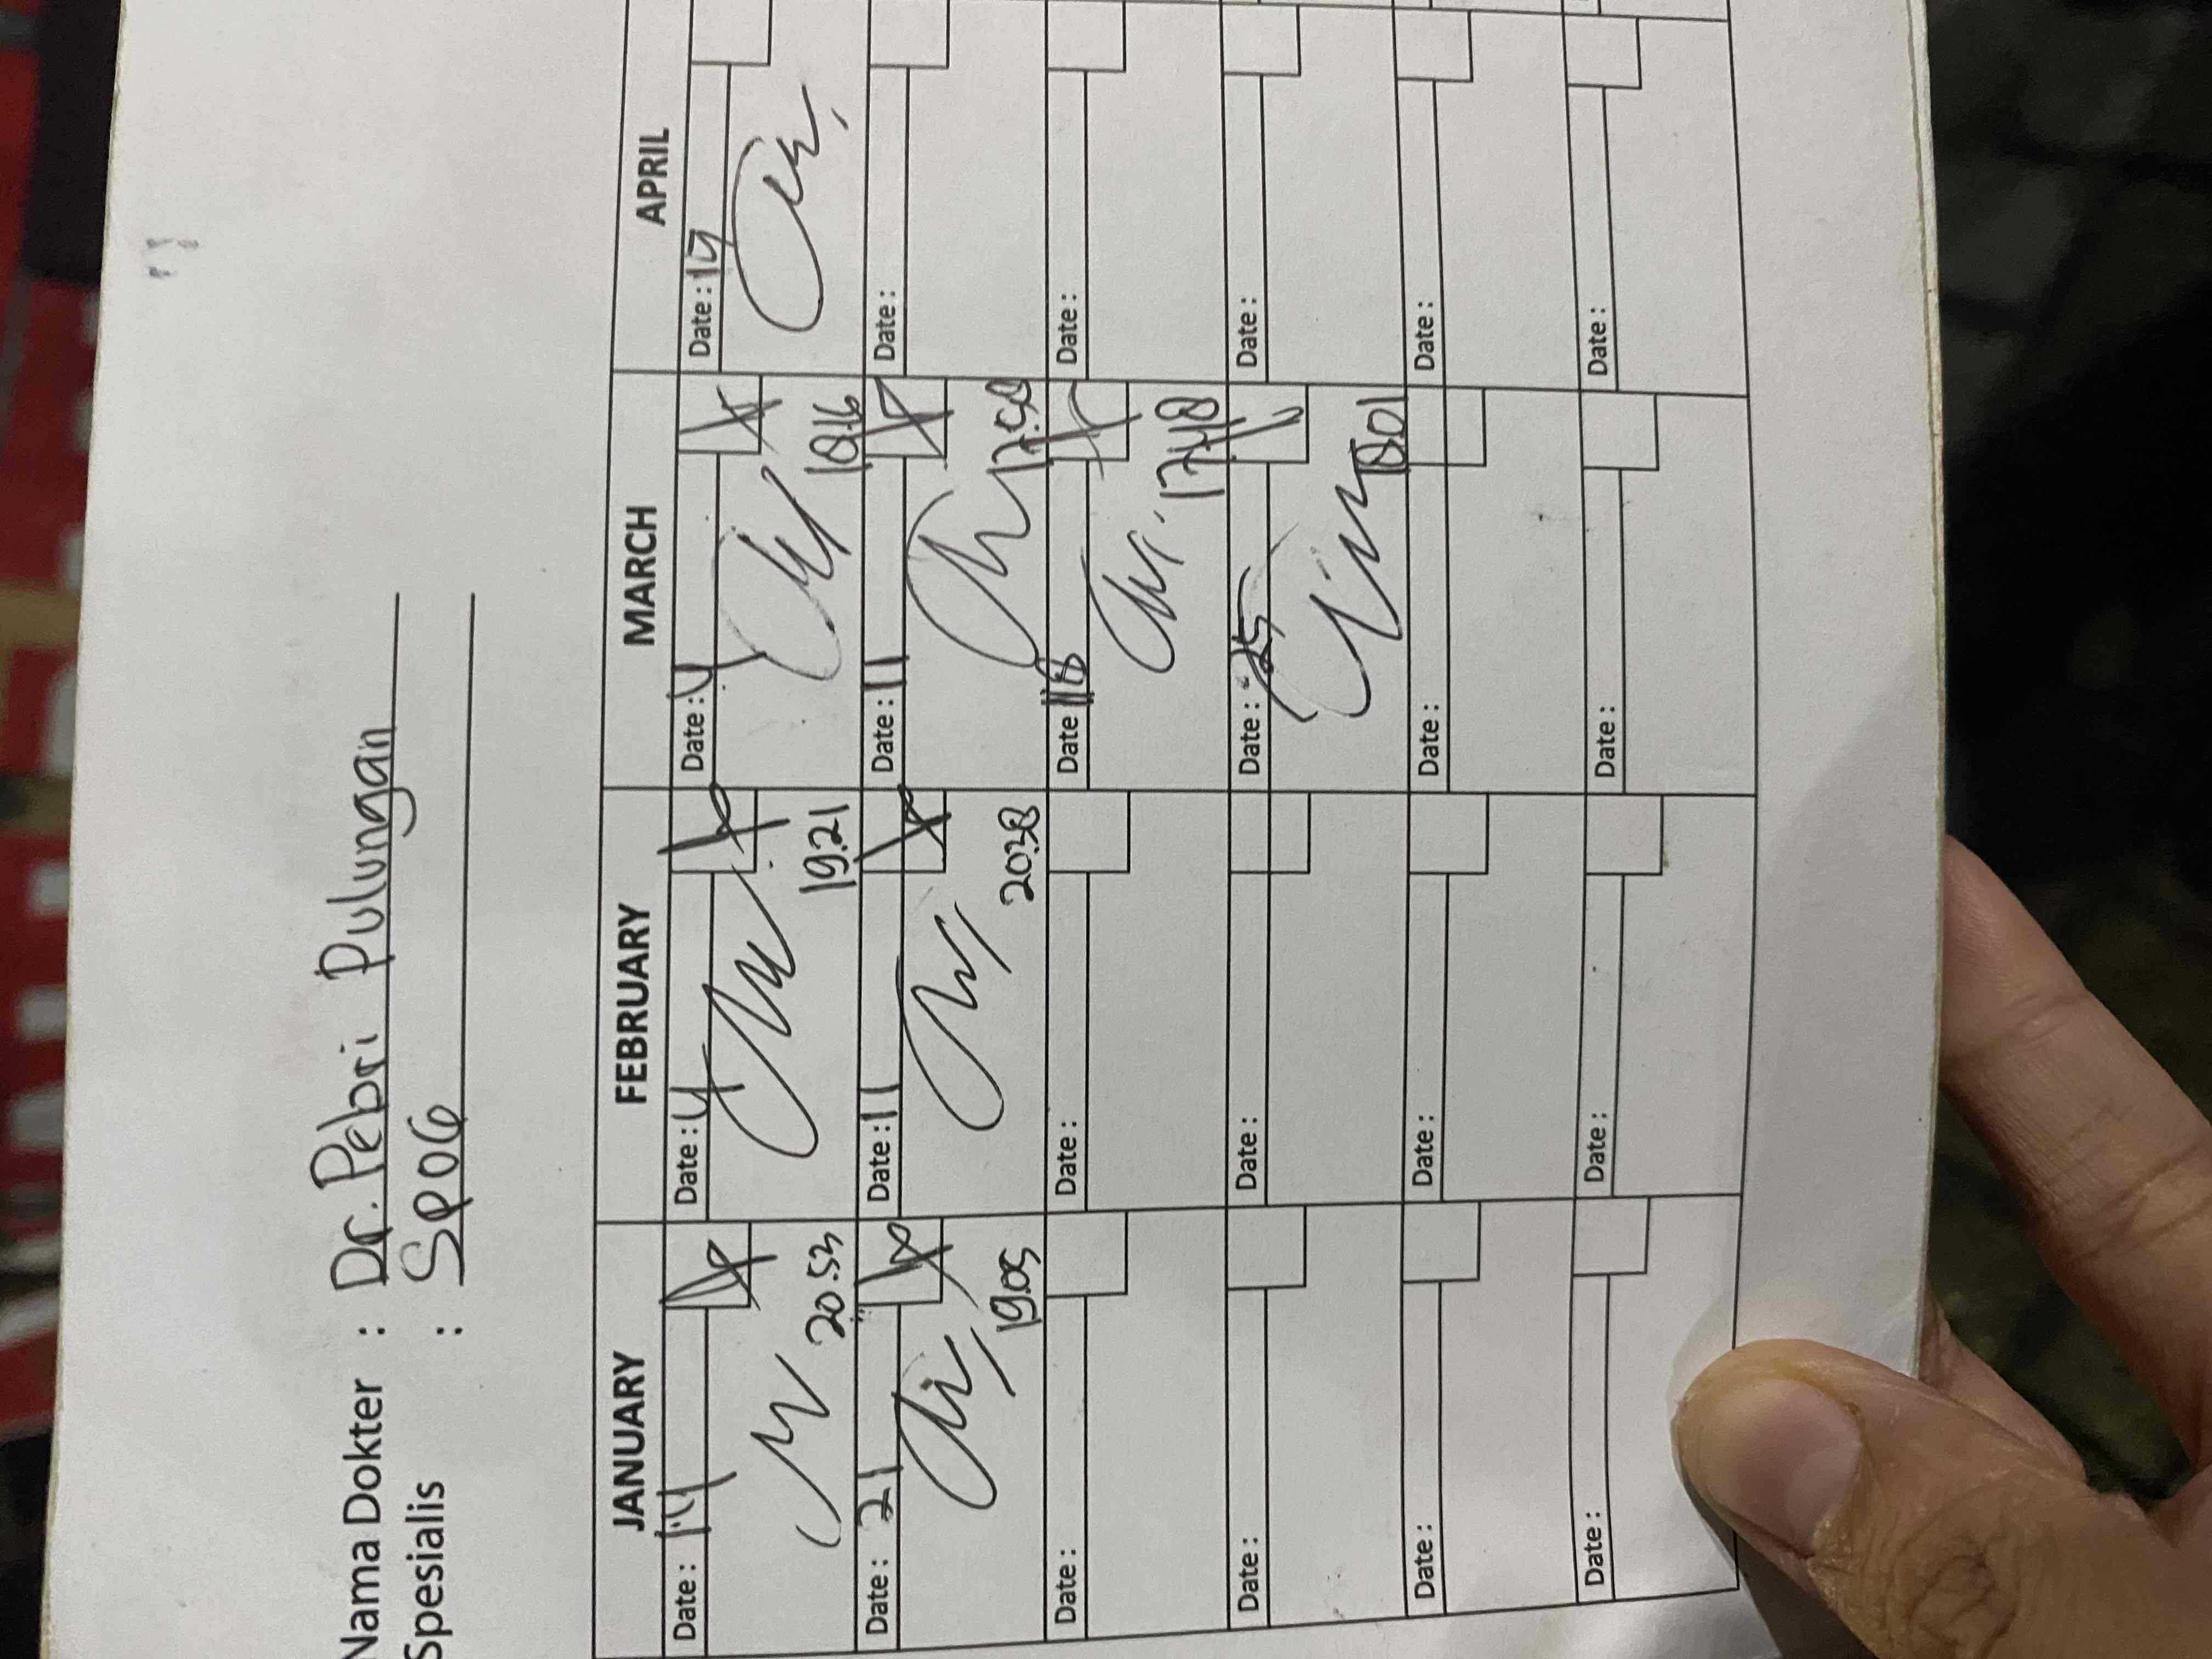 Nama Dokter : Dr. Pebri Pulungan
Spesialis : SPOG
JANUARY FEBRUARY MARCH APRIL
Date : 14 Date : 4 Date : 4 Date : 15
20.53 19.21 18.16
Date : 21 Date : 11 Date : 11 Date :
19.05 20.38 17.58
Date : Date : Date 18 Date :
17.48
Date : Date : Date : 25 Date :
18.01
Date : Date : Date : Date :
Date : Date : Date : Date :